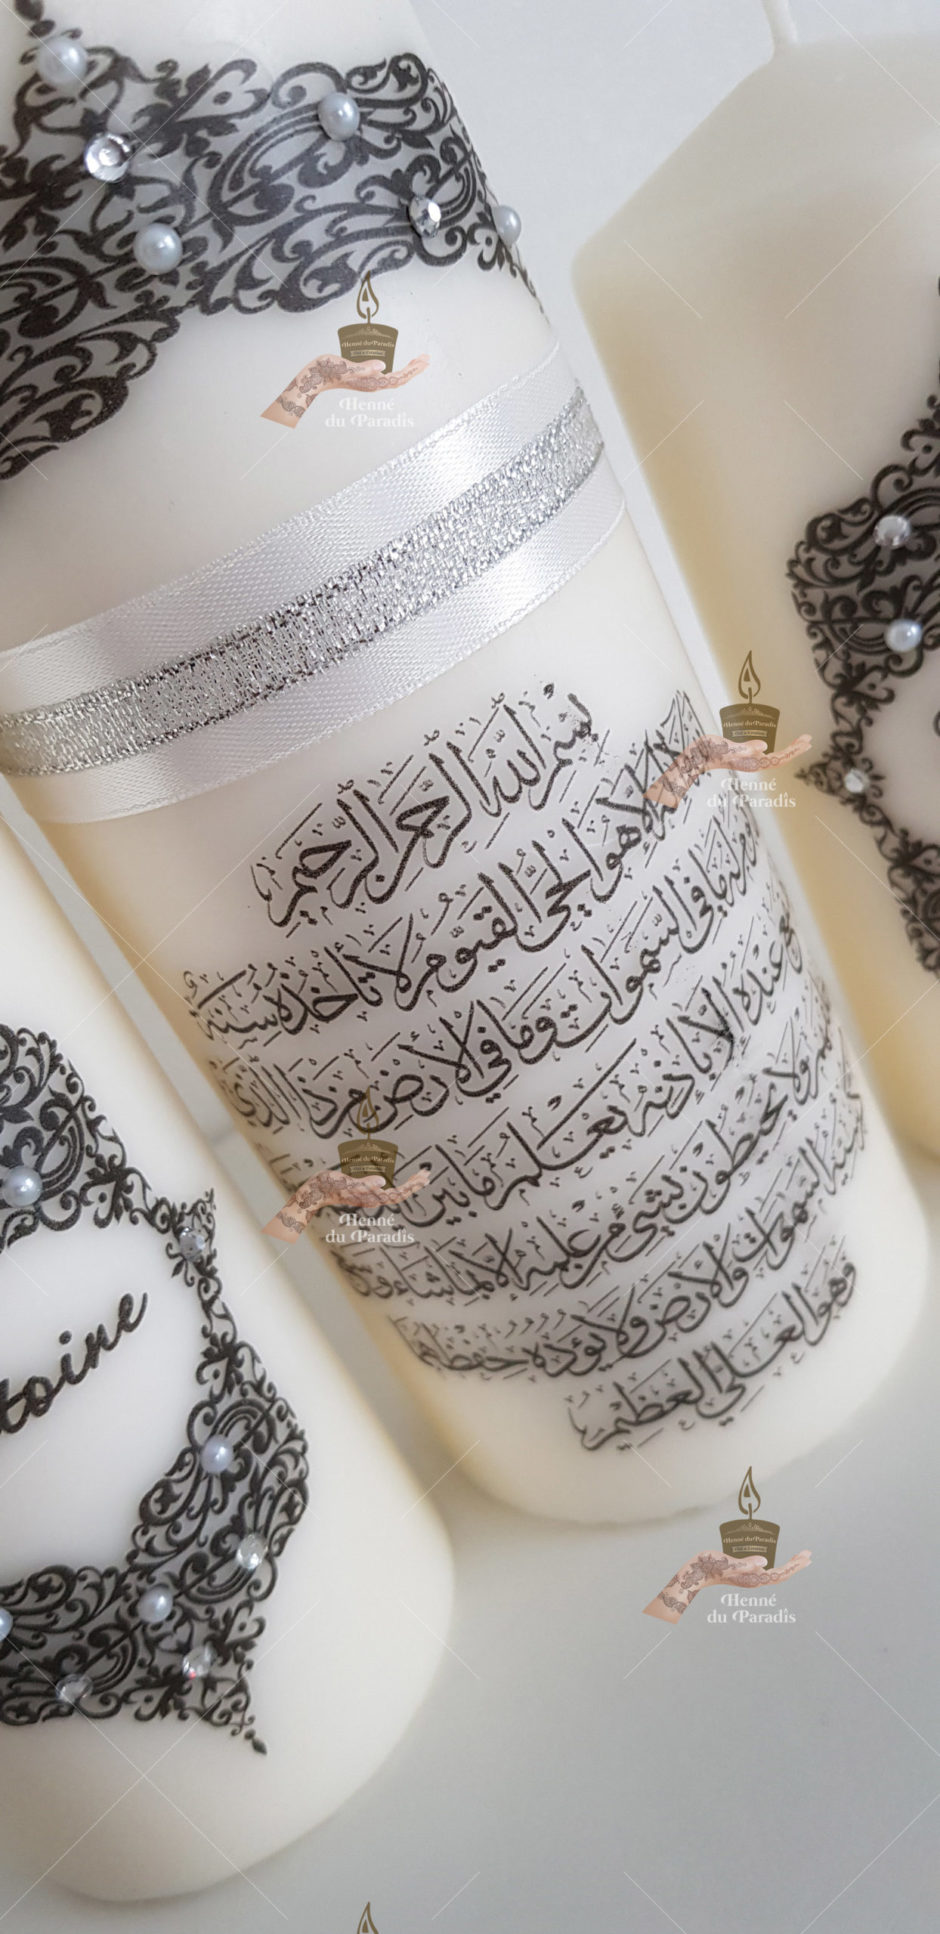 بسم الله الرحمن الرحيم
لا إله إلا هو الحي القيوم لا تأخذه سنة
له ما في السموات وما في الأرض من ذا الذي
عنده إلا بإذنه يعلم ما بين
ولا يحيطون بشيء من علمه إلا بما شاء وسع
السموات والأرض ولا يؤده حفظهما
وهو العلي العظيم
toine
Henné
du Paradis
Henné
du Paradis
Henné
du Paradis
Henné
du Paradis